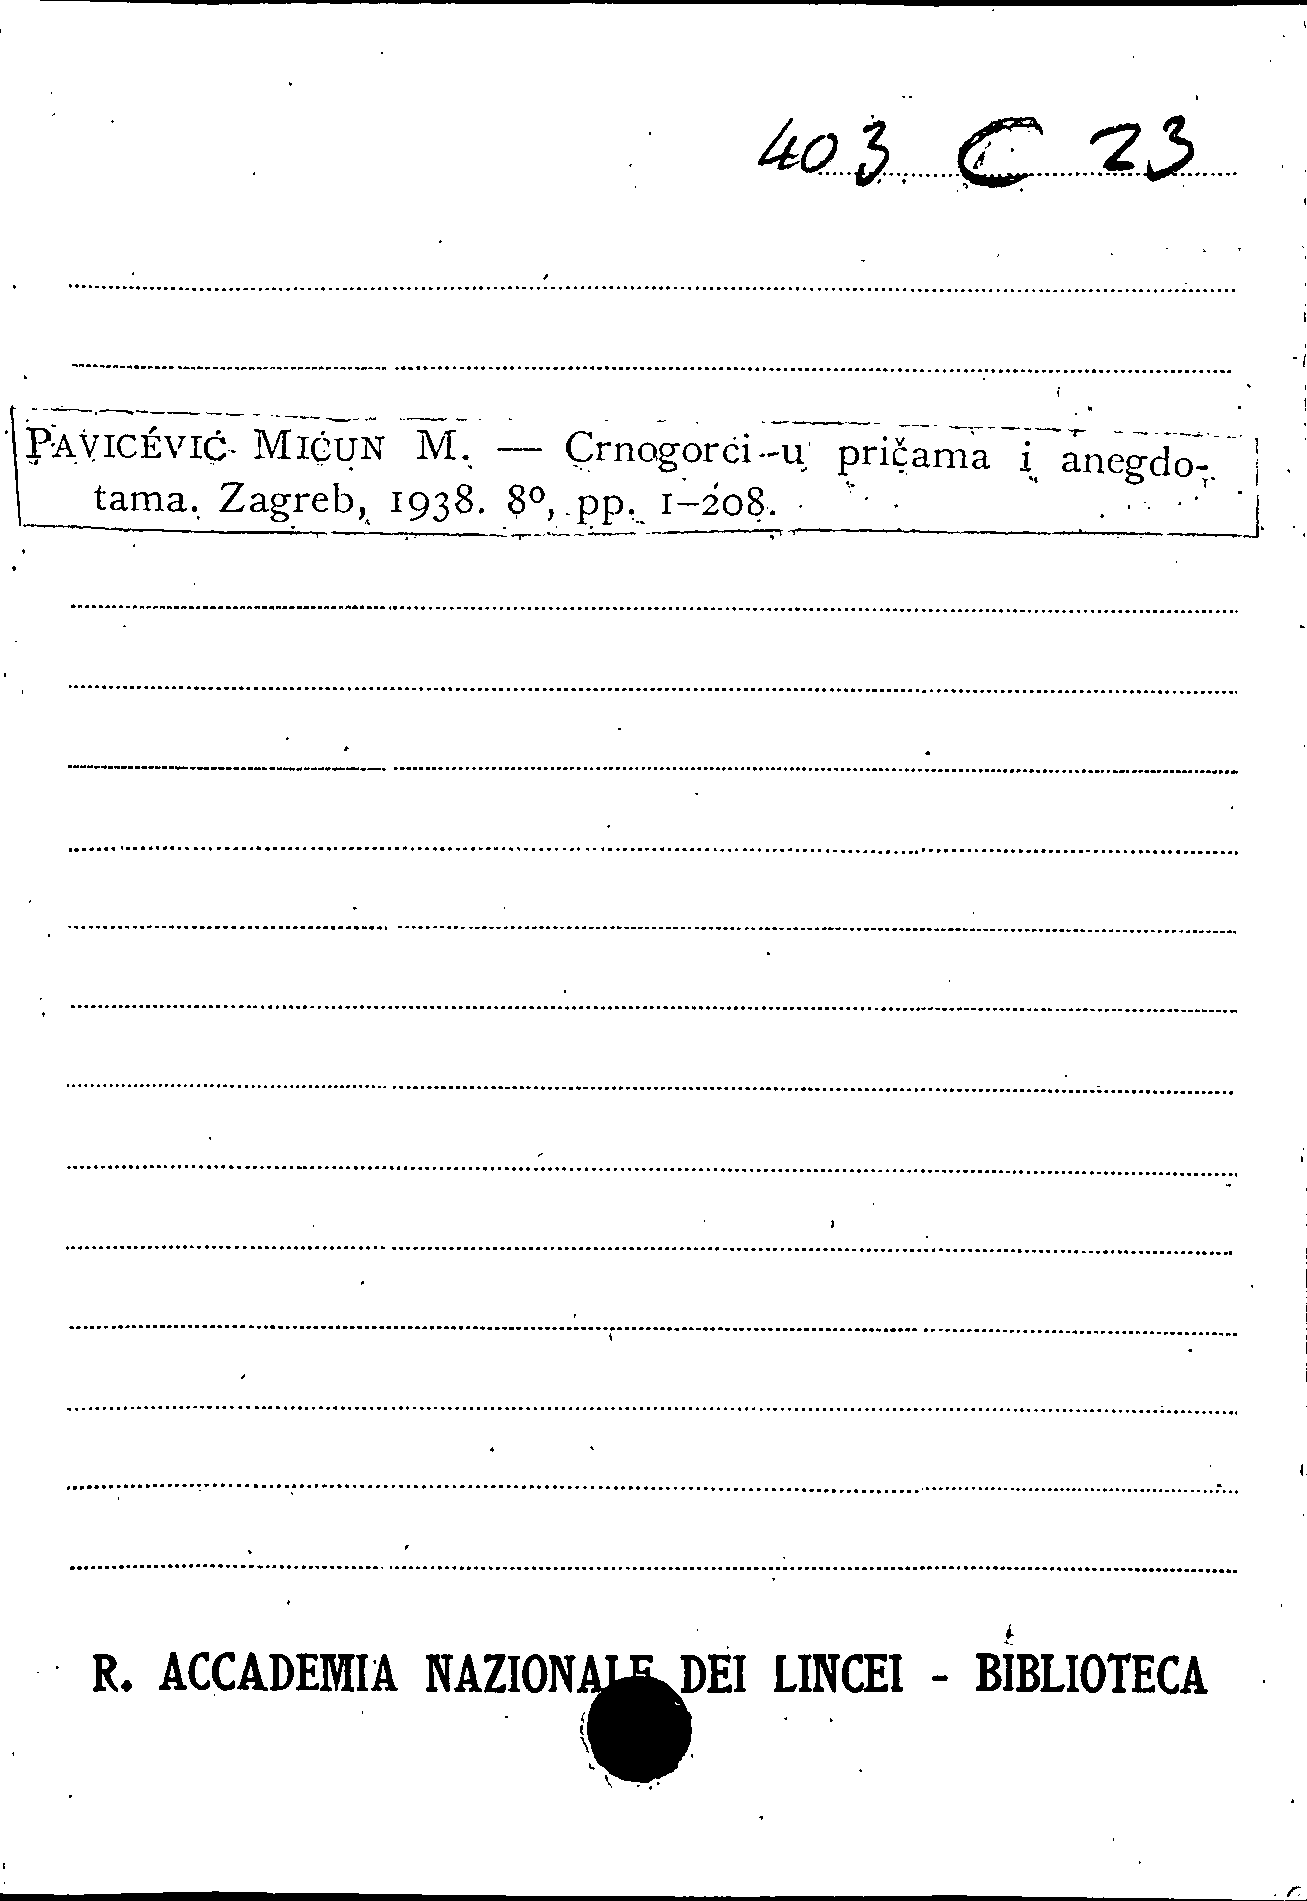 403 C 23
PAVICÉVIĆ MIĆUN M. — Crnogorci u pričama i anegdo-
tama. Zagreb, 1938. 8º, pp. 1-208.
R. ACCADEMIA NAZIONALE DEI LINCEI - BIBLIOTECA